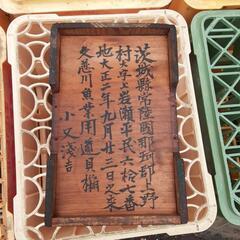 茨城縣常陸國那珂郡上野
村大字上岩瀬平民六拾七番
地大正二年九月廿三日之求
久慈川魚業用道具桶
小又淺吉